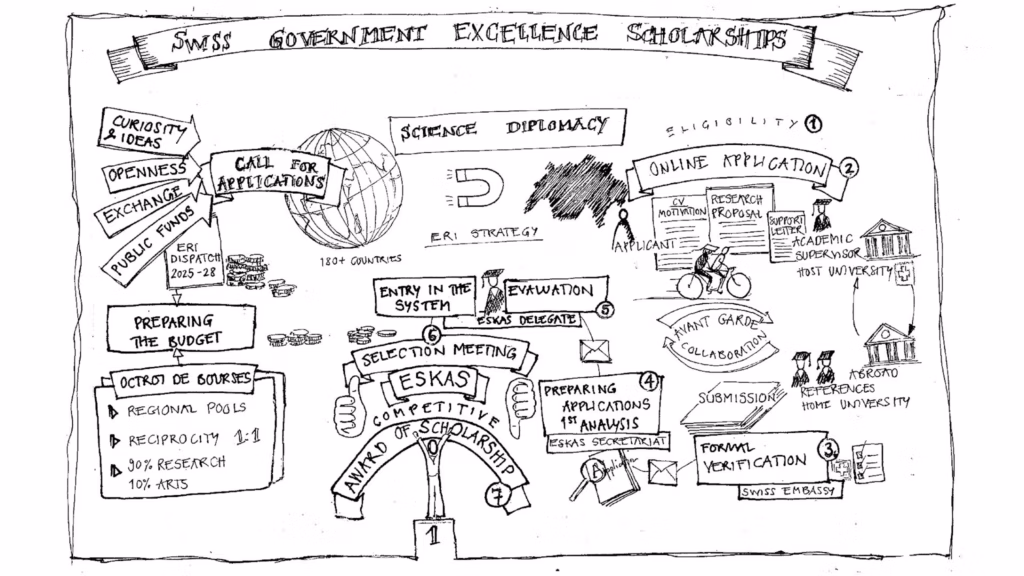 SWISS GOVERNMENT EXCELLENCE SCHOLARSHIPS
CURIOSITY
& IDEAS
OPENNESS
EXCHANGE
PUBLIC FUNDS
CALL FOR
APPLICATIONS
ERI
DISPATCH
2025-28
180+ COUNTRIES
PREPARING
THE BUDGET
OCTROI DE BOURSES
REGIONAL POOLS
RECIPROCITY 1:1
90% RESEARCH
10% ARTS
SCIENCE DIPLOMACY
ERI STRATEGY
ELIGIBILITY 1
ONLINE APPLICATION 2
CV
MOTIVATION
RESEARCH
PROPOSAL
SUPPORT
LETTER
APPLICANT
ACADEMIC
SUPERVISOR
HOST UNIVERSITY
AVANT GARDE
COLLABORATION
ABROAD
REFERENCES
HOME UNIVERSITY
SUBMISSION
FORMAL
VERIFICATION
3
SWISS EMBASSY
4
PREPARING
APPLICATIONS
1ST ANALYSIS
ESKAS SECRETARIAT
Application
ENTRY IN THE
SYSTEM
EVALUATION
5
ESKAS DELEGATE
6
SELECTION MEETING
ESKAS
COMPETITIVE
AWARD OF SCHOLARSHIP
7
1